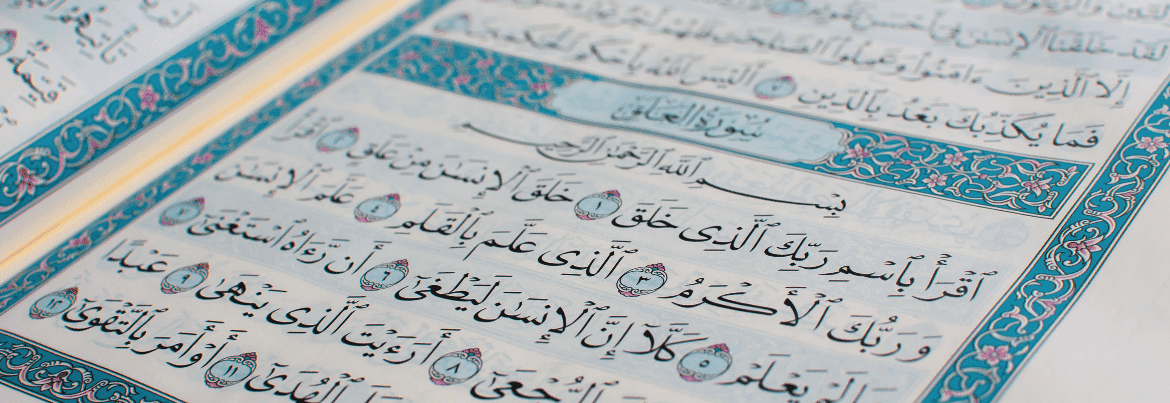 لَقَدْ خَلَقْنَا ٱلْإِنسَٰنَ فِىٓ أَحْسَنِ
إِلَّا ٱلَّذِينَ ءَامَنُوا۟ وَعَمِلُوا۟ ٱلصَّٰلِحَٰتِ فَلَهُمْ أَجْرٌ غَيْرُ
فَمَا يُكَذِّبُكَ بَعْدُ بِٱلدِّينِ ٧ أَلَيْسَ ٱللَّهُ بِأَحْكَمِ ٱلْحَٰكِمِينَ
سُورَةُ العَلَقِ
بِسْمِ ٱللَّهِ ٱلرَّحْمَٰنِ ٱلرَّحِيمِ
ٱقْرَأْ بِٱسْمِ رَبِّكَ ٱلَّذِى خَلَقَ ١ خَلَقَ ٱلْإِنسَٰنَ مِنْ عَلَقٍ ٢ ٱقْرَأْ
وَرَبُّكَ ٱلْأَكْرَمُ ٣ ٱلَّذِى عَلَّمَ بِٱلْقَلَمِ ٤ عَلَّمَ ٱلْإِنسَٰنَ
لَمْ يَعْلَمْ ٥ كَلَّآ إِنَّ ٱلْإِنسَٰنَ لَيَطْغَىٰٓ ٦ أَن رَّءَاهُ ٱسْتَغْنَىٰٓ ٧
ٱلرُّجْعَىٰٓ ٨ أَرَءَيْتَ ٱلَّذِى يَنْهَىٰ ٩ عَبْدًا
ٱلْهُدَىٰٓ ١١ أَوْ أَمَرَ بِٱلتَّقْوَىٰٓ ١٢